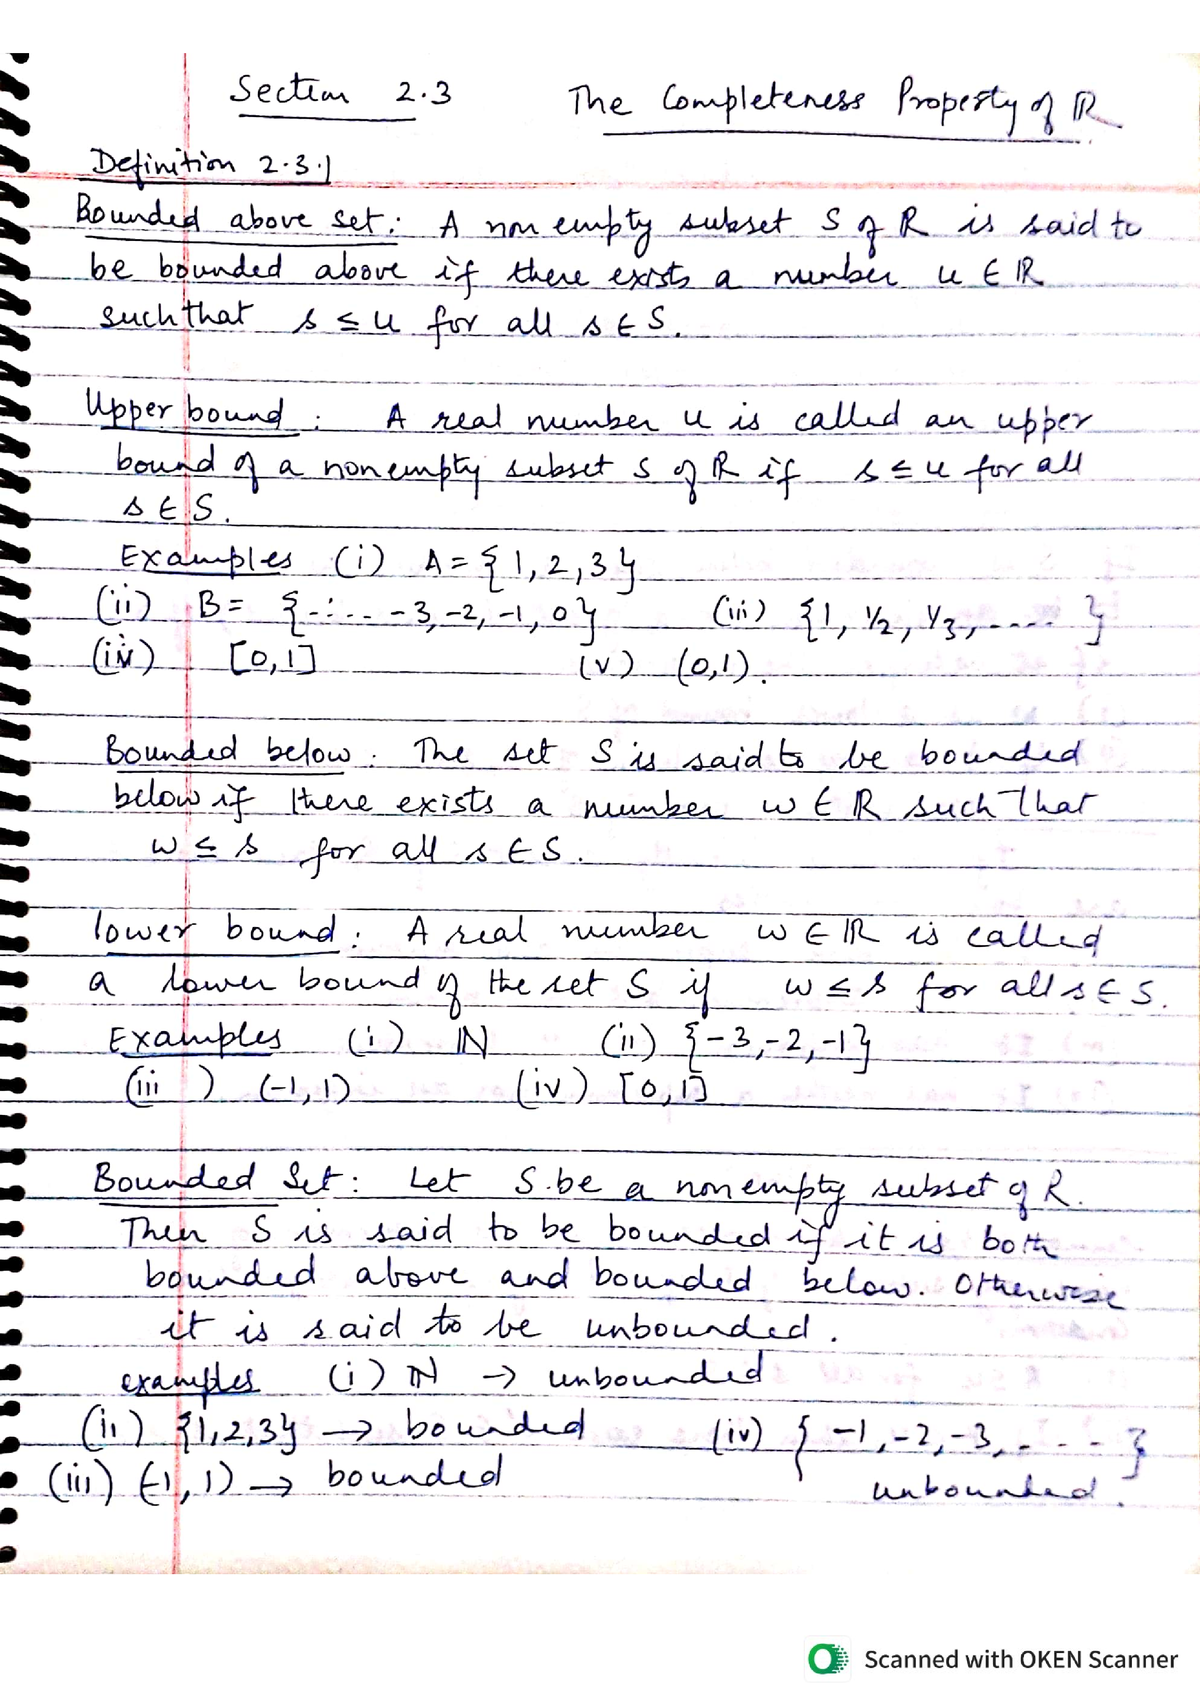 Section 2.3 The Completeness Property of ℝ
Definition 2.3.1
Bounded above set: A non empty subset S of R is said to
be bounded above if there exists a number u ∈ ℝ
such that s ≤ u for all s ∈ S.
Upper bound : A real number u is called an upper
bound of a nonempty subset S of R if s ≤ u for all
s ∈ S.
Examples (i) A = {1, 2, 3}
(ii) B = {----- -3, -2, -1, 0} (iii) {1, 1/2, 1/3, ---- }
(iv) [0,1] (v) (0,1).
Bounded below : The set S is said to be bounded
below if there exists a number w ∈ R such that
w ≤ s for all s ∈ S.
lower bound : A real number w ∈ ℝ is called
a lower bound of the set S if w ≤ s for all s ∈ S.
Examples (i) ℕ (ii) {-3, -2, -1}
(iii) (-1, 1) (iv) [0, 1]
Bounded Set: Let S be a nonempty subset of R.
Then S is said to be bounded if it is both
bounded above and bounded below. Otherwise
it is said to be unbounded.
examples (i) ℕ → unbounded
(ii) {1,2,3} → bounded (iv) { -1, -2, -3, - - - }
(iii) (-1, 1) → bounded unbounded.
Scanned with OKEN Scanner